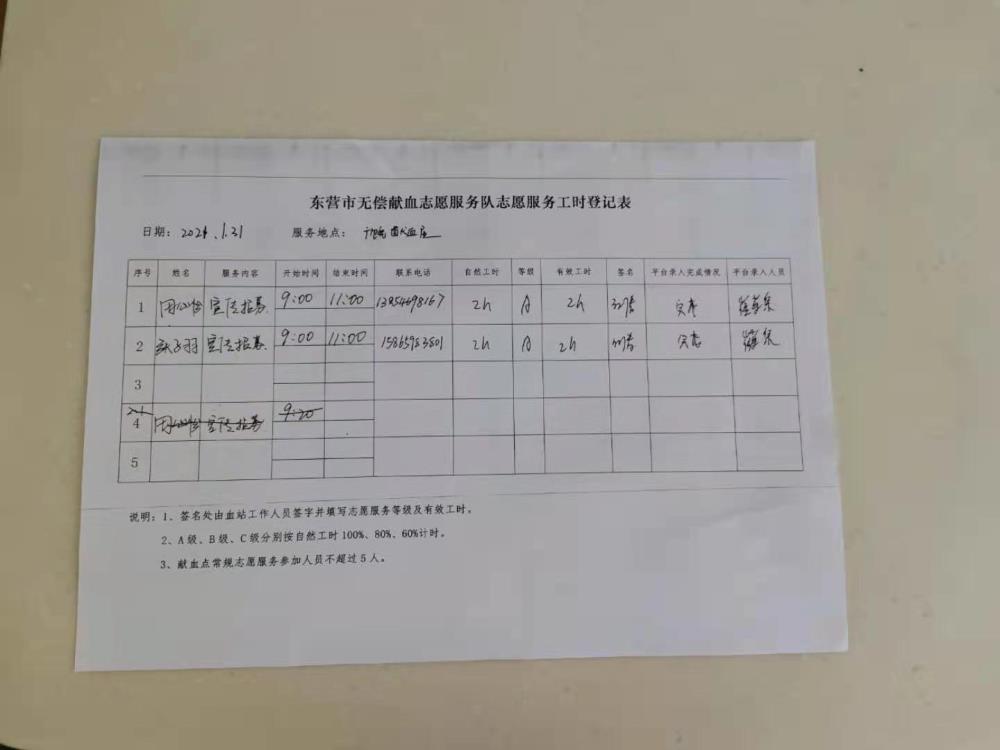 东营市无偿献血志愿服务队志愿服务工时登记表
日期：2021.1.31 服务地点：
序号 姓名 服务内容 开始时间 结束时间 联系电话 自然工时 等级 有效工时 签名 平台录入完成情况 平台录入人员
1 宣传招募 9:00 11:00 13954698167 2h A 2h
2 宣传招募 9:00 11:00 2h A 2h
3
4 宣传招募 9:20
5
说明：1、签名处由血站工作人员签字并填写志愿服务等级及有效工时。
2、A级、B级、C级分别按自然工时100%、80%、60%计时。
3、献血点常规志愿服务参加人员不超过5人。